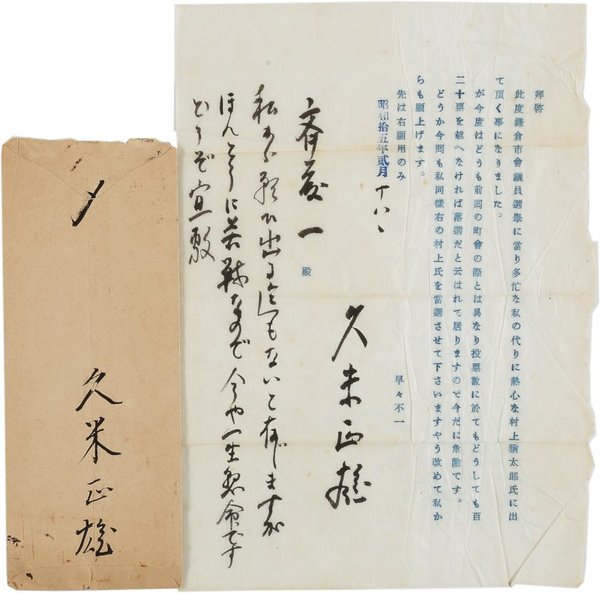 拜啓
此度鎌倉市會議員選擧に當り多忙な私の代りに熱心な村上猶太郎氏に出
て頂く事になりました。
が今度はどうも前囘の町會の際とは異なり投票數に於てもどうしても百
二十票を越へなければ落選だと云はれて居りますので今だに危險です。
どうか今囘も私同樣右の村上氏を當選させて下さいますやう改めて私か
らも願上げます。
先は右願用のみ
早々不一
昭和拾五年貳月 十八日
久米正雄
斉藤一 殿
私から願ひ出る迄もないと存じますが
ほんとうに苦戦なので今や一生懸命です
どうぞ宜敷
〆
久米正雄